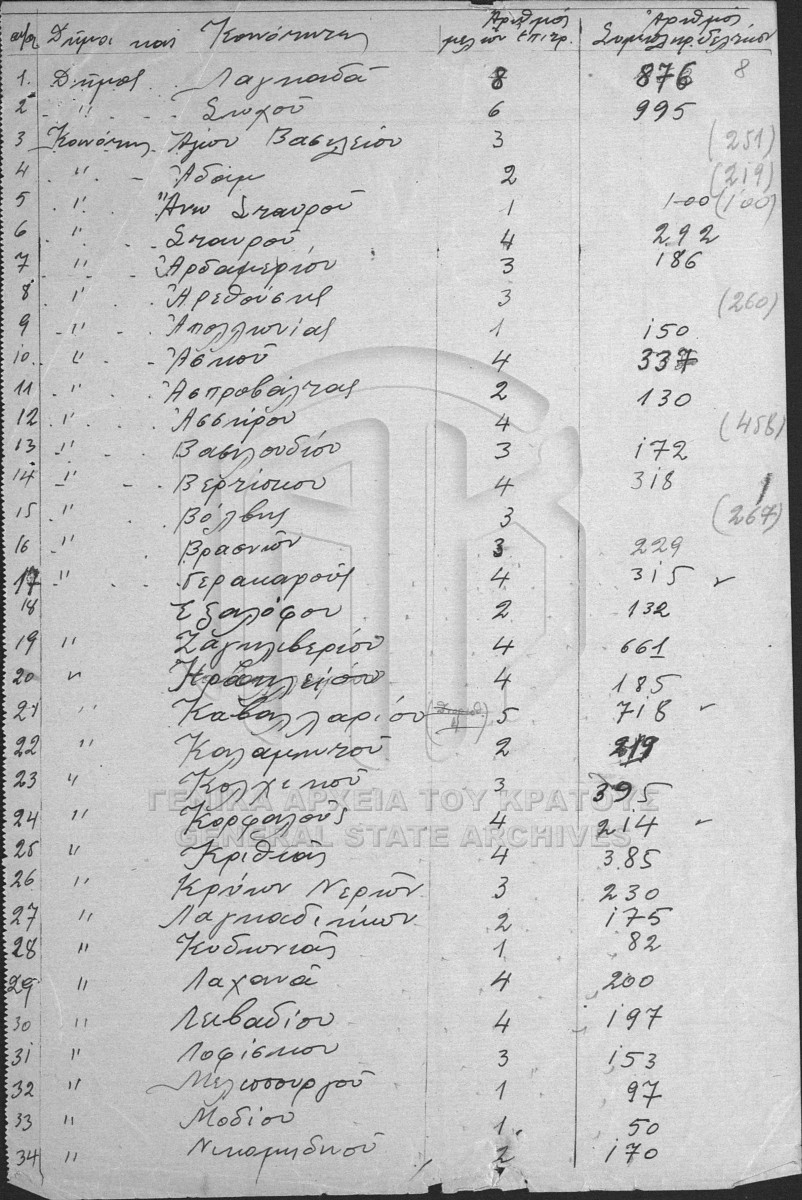 α/α Δήμοι και Κοινότητες Αριθμός μελών Επιτρ. Αριθμός Συμπληρ. δελτίων
1. Δήμος Λαγκαδά 8 876 8
2 " Σοχού 6 995
3 Κοινότης Αγίου Βασιλείου 3 (251)
4 " Άδαμ 2 (219)
5 " Άνω Σταυρού 1 100 (100)
6 " Σταυρού 4 292
7 " Αρδαμερίου 3 186
8 " Αρεθούσης 3 (260)
9 " Απολλωνίας 1 150
10 " Ασκού 4 337
11 " Ασπροβάλτας 2 130
12 " Ασσήρου 4 (458)
13 " Βασιλουδίου 3 172
14 " Βερτίσκου 4 318
15 " Βόλβης 3 (267)
16 " Βρασνών 3 229
17 " Γερακαρούς 4 315 ✓
18 Εξαλόφου 2 132
19 " Ζαγκλιβερίου 4 661
20 " Ηρακλείου 4 185
21 " Καβαλλαρίου 5 718 ✓
22 " Καλαμωτού 2 219
23 " Κολχικού 3 395
24 " Κορφαλούς 4 214 ✓
25 " Κριθιάς 4 385
26 " Κρύων Νερών 3 230
27 " Λαγκαδικίων 2 175
28 " Κυδωνιάς 1 82
29 " Λαχανά 4 200
30 " Λειβαδίου 4 197
31 " Λοφίσκου 3 153
32 " Μελισσουργού 1 97
33 " Μοδίου 1. 50
34 " Νικομηδινού 2 170
ΓΕΝΙΚΑ ΑΡΧΕΙΑ ΤΟΥ ΚΡΑΤΟΥΣ
GENERAL STATE ARCHIVES